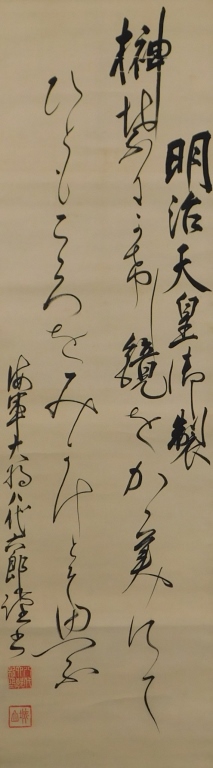 明治天皇御製
榊葉にかけし鏡をかゝ美にて
ひともこころをみかけとそ思ふ
海軍大将八代六郎謹書